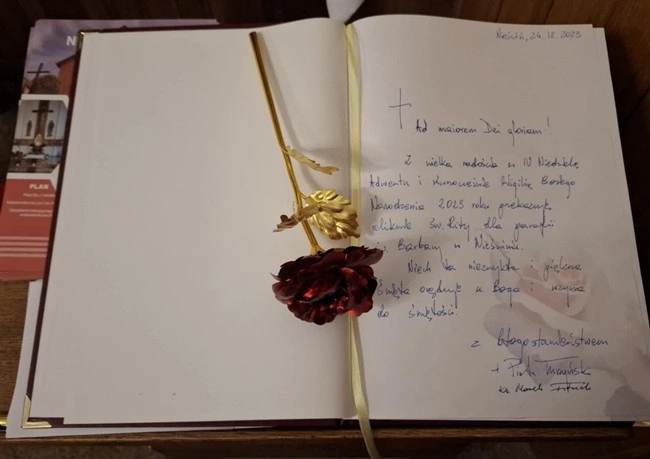 24.12.2023
Ad maiorem Dei gloriam!
Z wielką radością w IV Niedzielę
Adwentu i równocześnie Wigilię Bożego
Narodzenia 2023 roku przekazuję
relikwie św. Rity dla parafii
Barbary w
Niech ta niezwykła i piękna
Święta oręduje u Boga i wzywa
do świętości.
z błogosławieństwem
+ Piotr
ks. Marek
PLAN